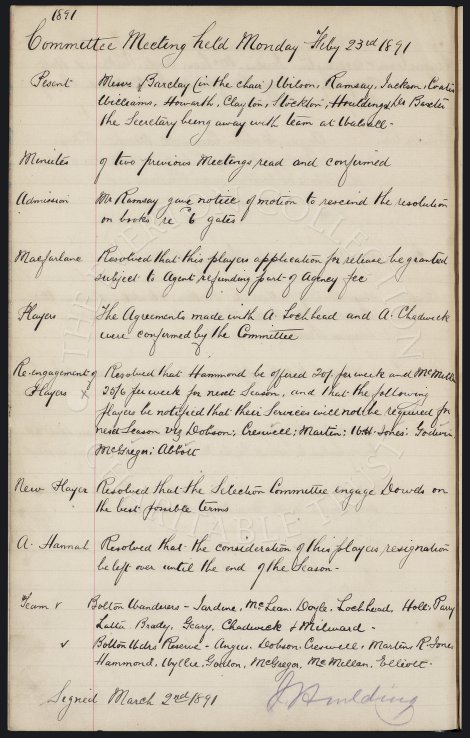 1891
Committee Meeting held Monday Feby 23rd 1891
Present Messrs Barclay (in the chair) Wilson, Ramsay, Jackson, Coates
Williams, Howarth, Clayton, Stockton, Houlding & Dr Baxter
the Secretary being away with team at Walsall.
Minutes of two previous Meetings read and confirmed
Admission Mr Ramsay gave notice of motion to rescind the resolution
on books re 6d gates
Macfarlane Resolved that this players application for release be granted
subject to Agent refunding part of Agency fee
Players The Agreements made with A. Lochhead and A. Chadwick
were confirmed by the Committee
Re-engagement of Resolved that Hammond be offered 20/- per week and McMillan
Players x 25/6 per week for next Season, and that the following
players be notified that their Services will not be required for
next Season viz Dobson; Creswell; Martin; W.H. Jones; Godwin
McGregor; Abbott
New Player Resolved that the Selection Committee engage Dowds on
the best possible terms
A. Hannah Resolved that the consideration of this players resignation
be left over until the end of the Season.
Team v Bolton Wanderers - Jardine, McLean, Doyle, Lochhead, Holt, Parry
Latta, Brady, Geary, Chadwick & Milward.
v Bolton Wdrs Reserve - Angus, Dobson, Creswell, Martin, R. Jones
Hammond, Wyllie, Gordon, McGregor, McMillan, Elliott.
Signed March 2nd 1891 J Houlding